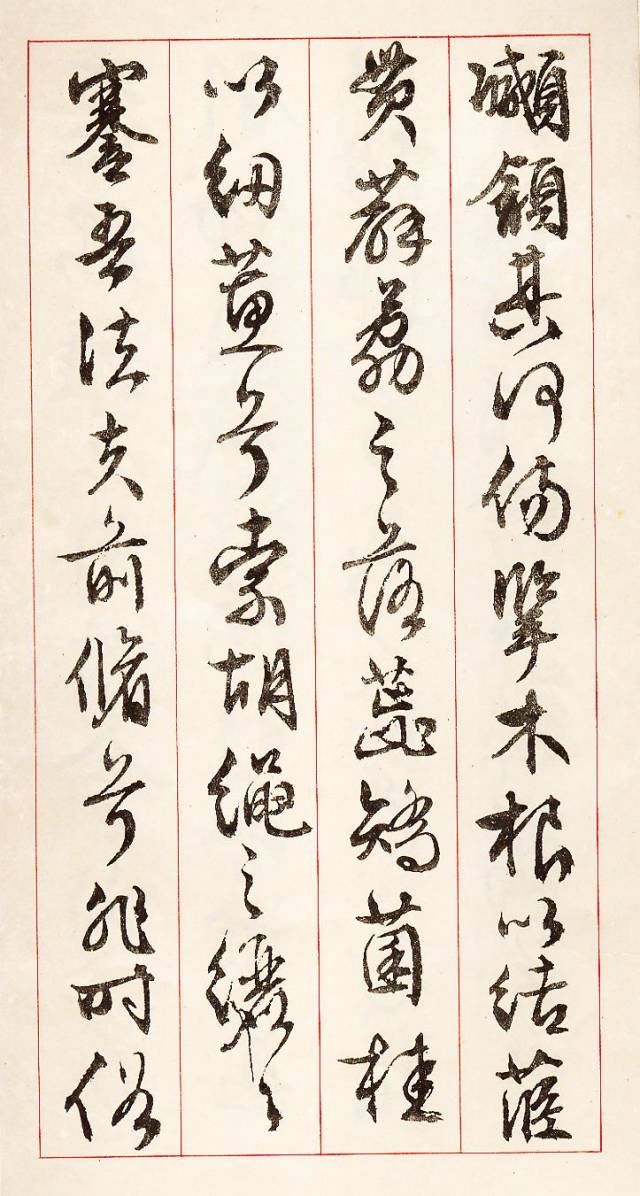 顑頷其何傷擥木根以結茝
貫薜荔之落蕊矯菌桂
以紉蕙兮索胡繩之纚〻
謇吾法夫前脩兮非時俗